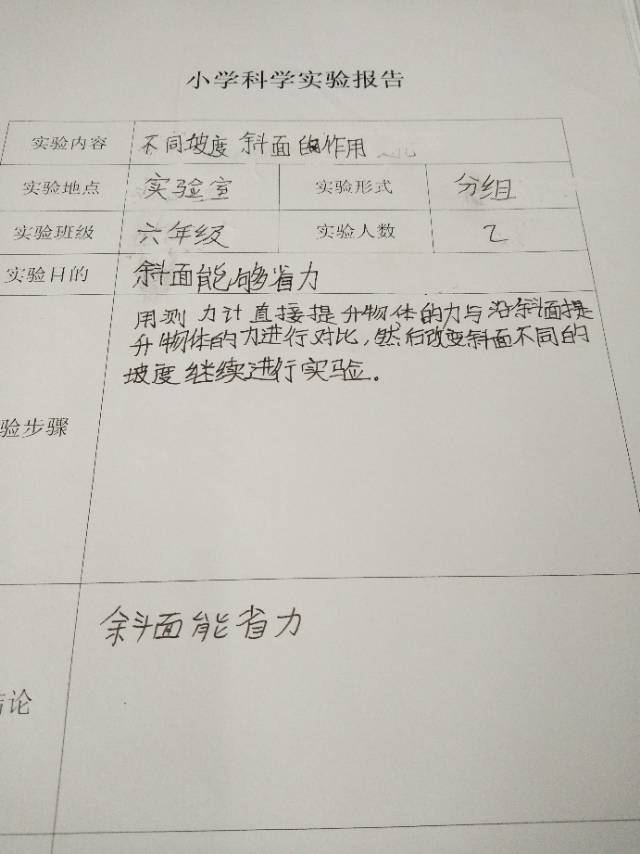 小学科学实验报告
实验内容 不同坡度斜面的作用
实验地点 实验室 实验形式 分组
实验班级 六年级 实验人数 2
实验目的 斜面能够省力
用测力计直接提升物体的力与沿斜面提
升物体的力进行对比,然后改变斜面不同的
坡度继续进行实验。
验步骤
斜面能省力
论